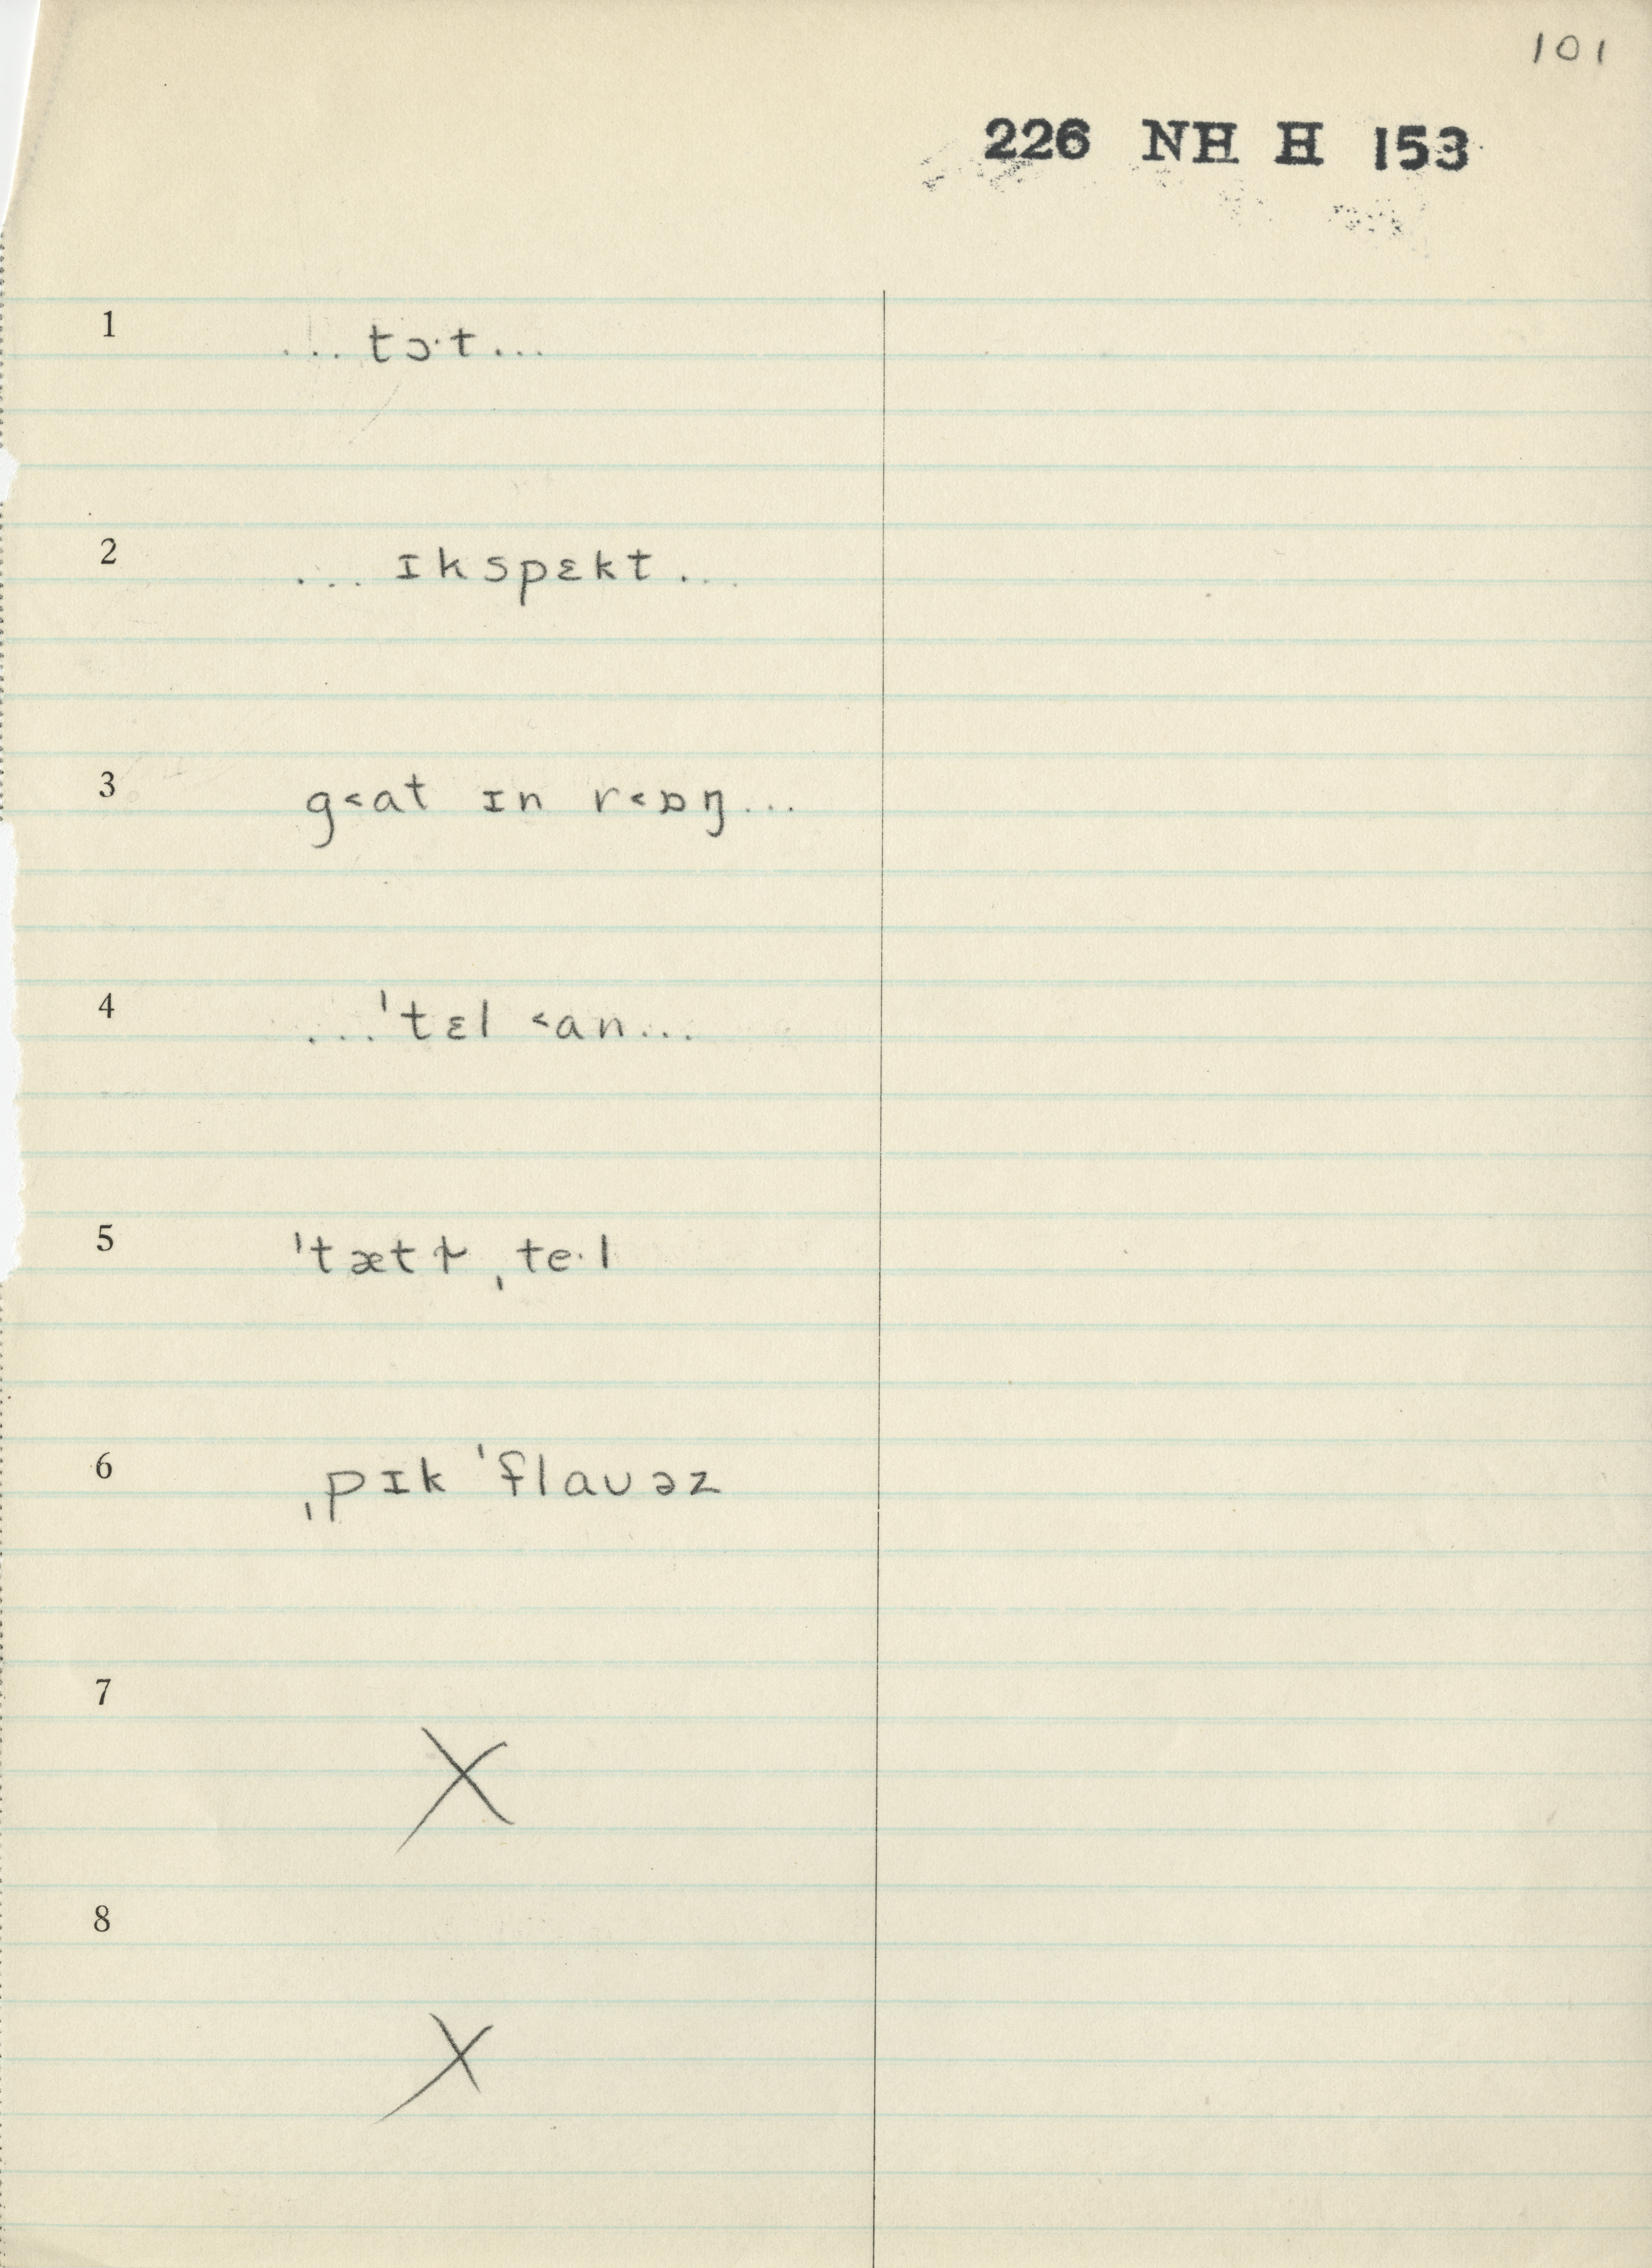 101
226 NH H 153
1 ... tɔ·t...
2 ... ɪkspɛkt...
3 g˂at ɪn r˂ɒŋ...
4 ...ˈtɛl ˂an...
5 ˈtætɫ ˌte·l
6 ˌpɪk ˈflauəz
7 X
8 X